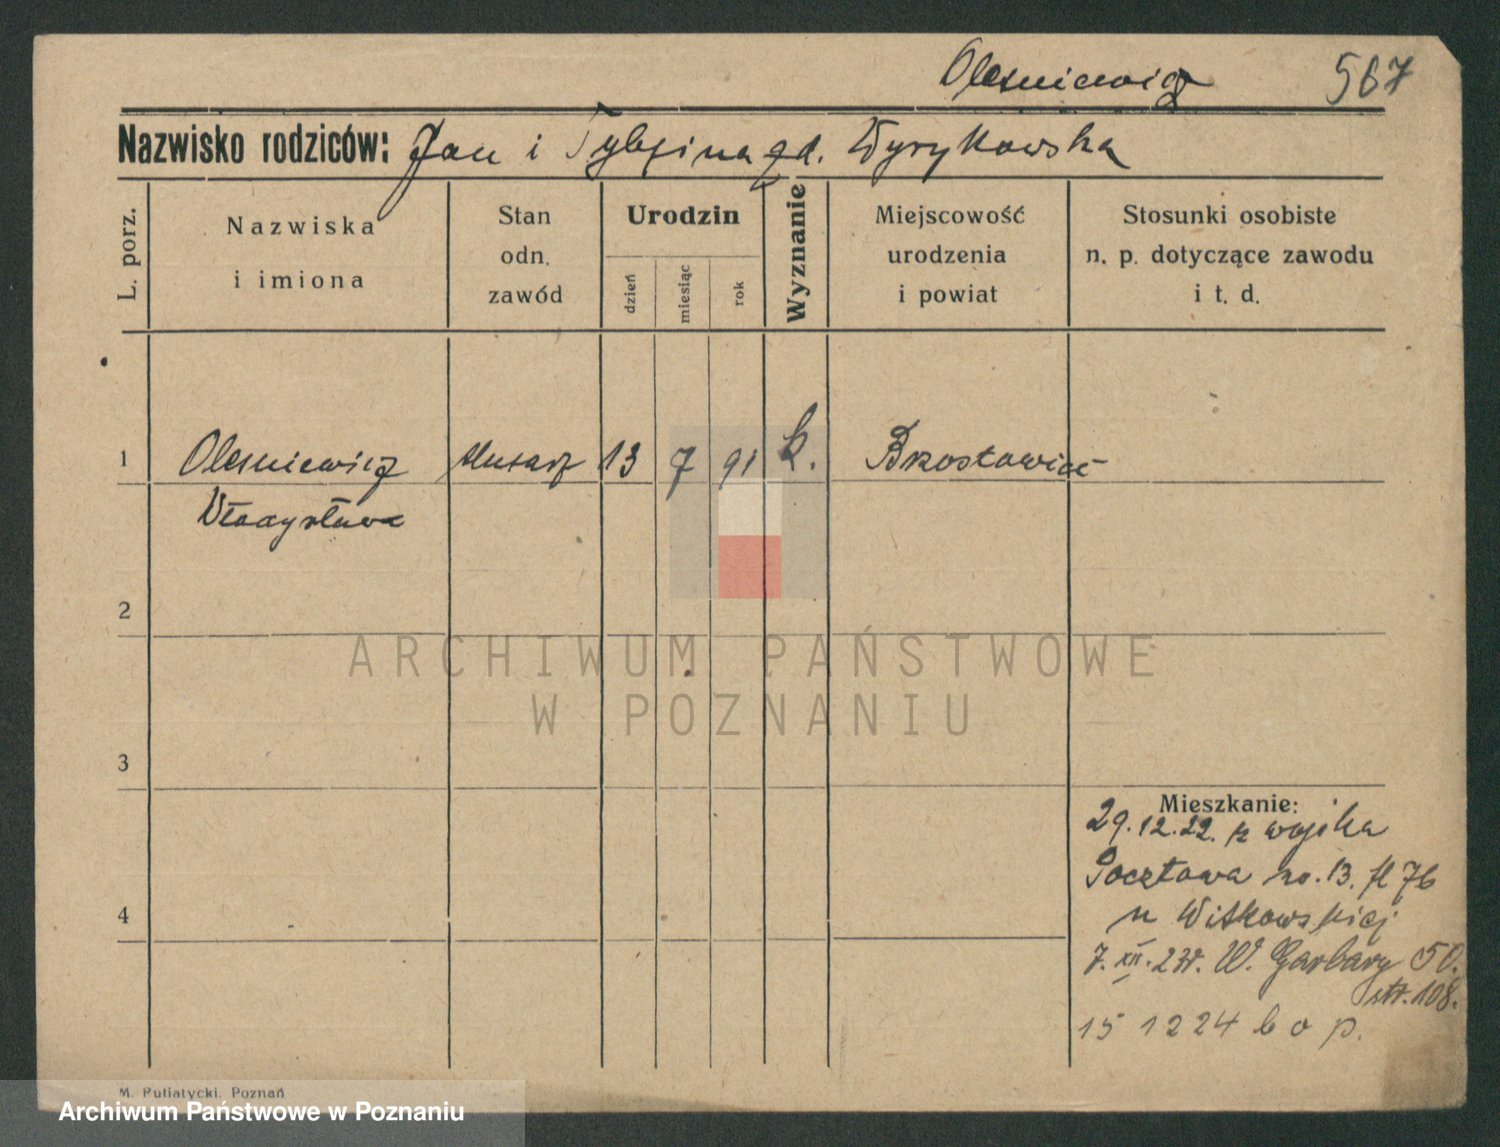 Olesniewicz 567
Nazwisko rodziców: Jan i gd. Wyrykowska
L. porz.
Nazwiska
i imiona
Stan
odn.
zawód
Urodzin
dzień
miesiąc
rok
Wyznanie
Miejscowość
urodzenia
i powiat
Stosunki osobiste
n. p. dotyczące zawodu
i t. d.
1 Olesniewicz 13 7 91 k.
Władysław
2
ARCHIWUM PAŃSTWOWE
W POZNANIU
3
Mieszkanie:
29.12.22. z wojska
Pocztowa no. 13. 76
u Witkowskiej
7. XII. 23r. W. Garbary 50.
str. 108.
4
15 12 24 b o p.
M. Putiatycki, Poznań
Archiwum Państwowe w Poznaniu